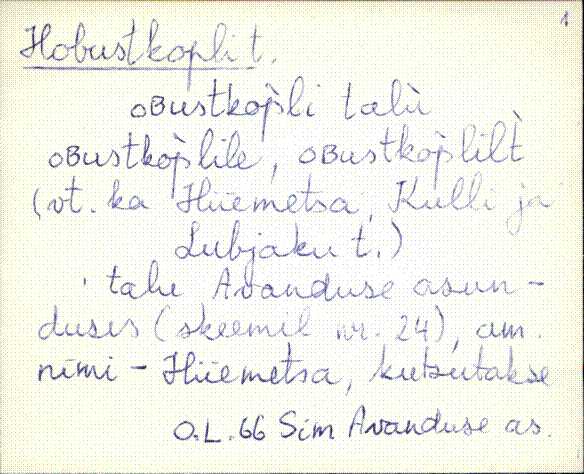 1
Hobustkopli t.
oBustkop̀li talù
oBustkop̀lile, oBustkop̀lilt̀
(vt. ka Hiiemetsa, Kulli ja
Lubjaku t.)
talu Avanduse asun-
duses (skeemil nr. 24), am.
nimi - Hiiemetsa, kutsutakse
O.L. 66 Sim Avanduse as.